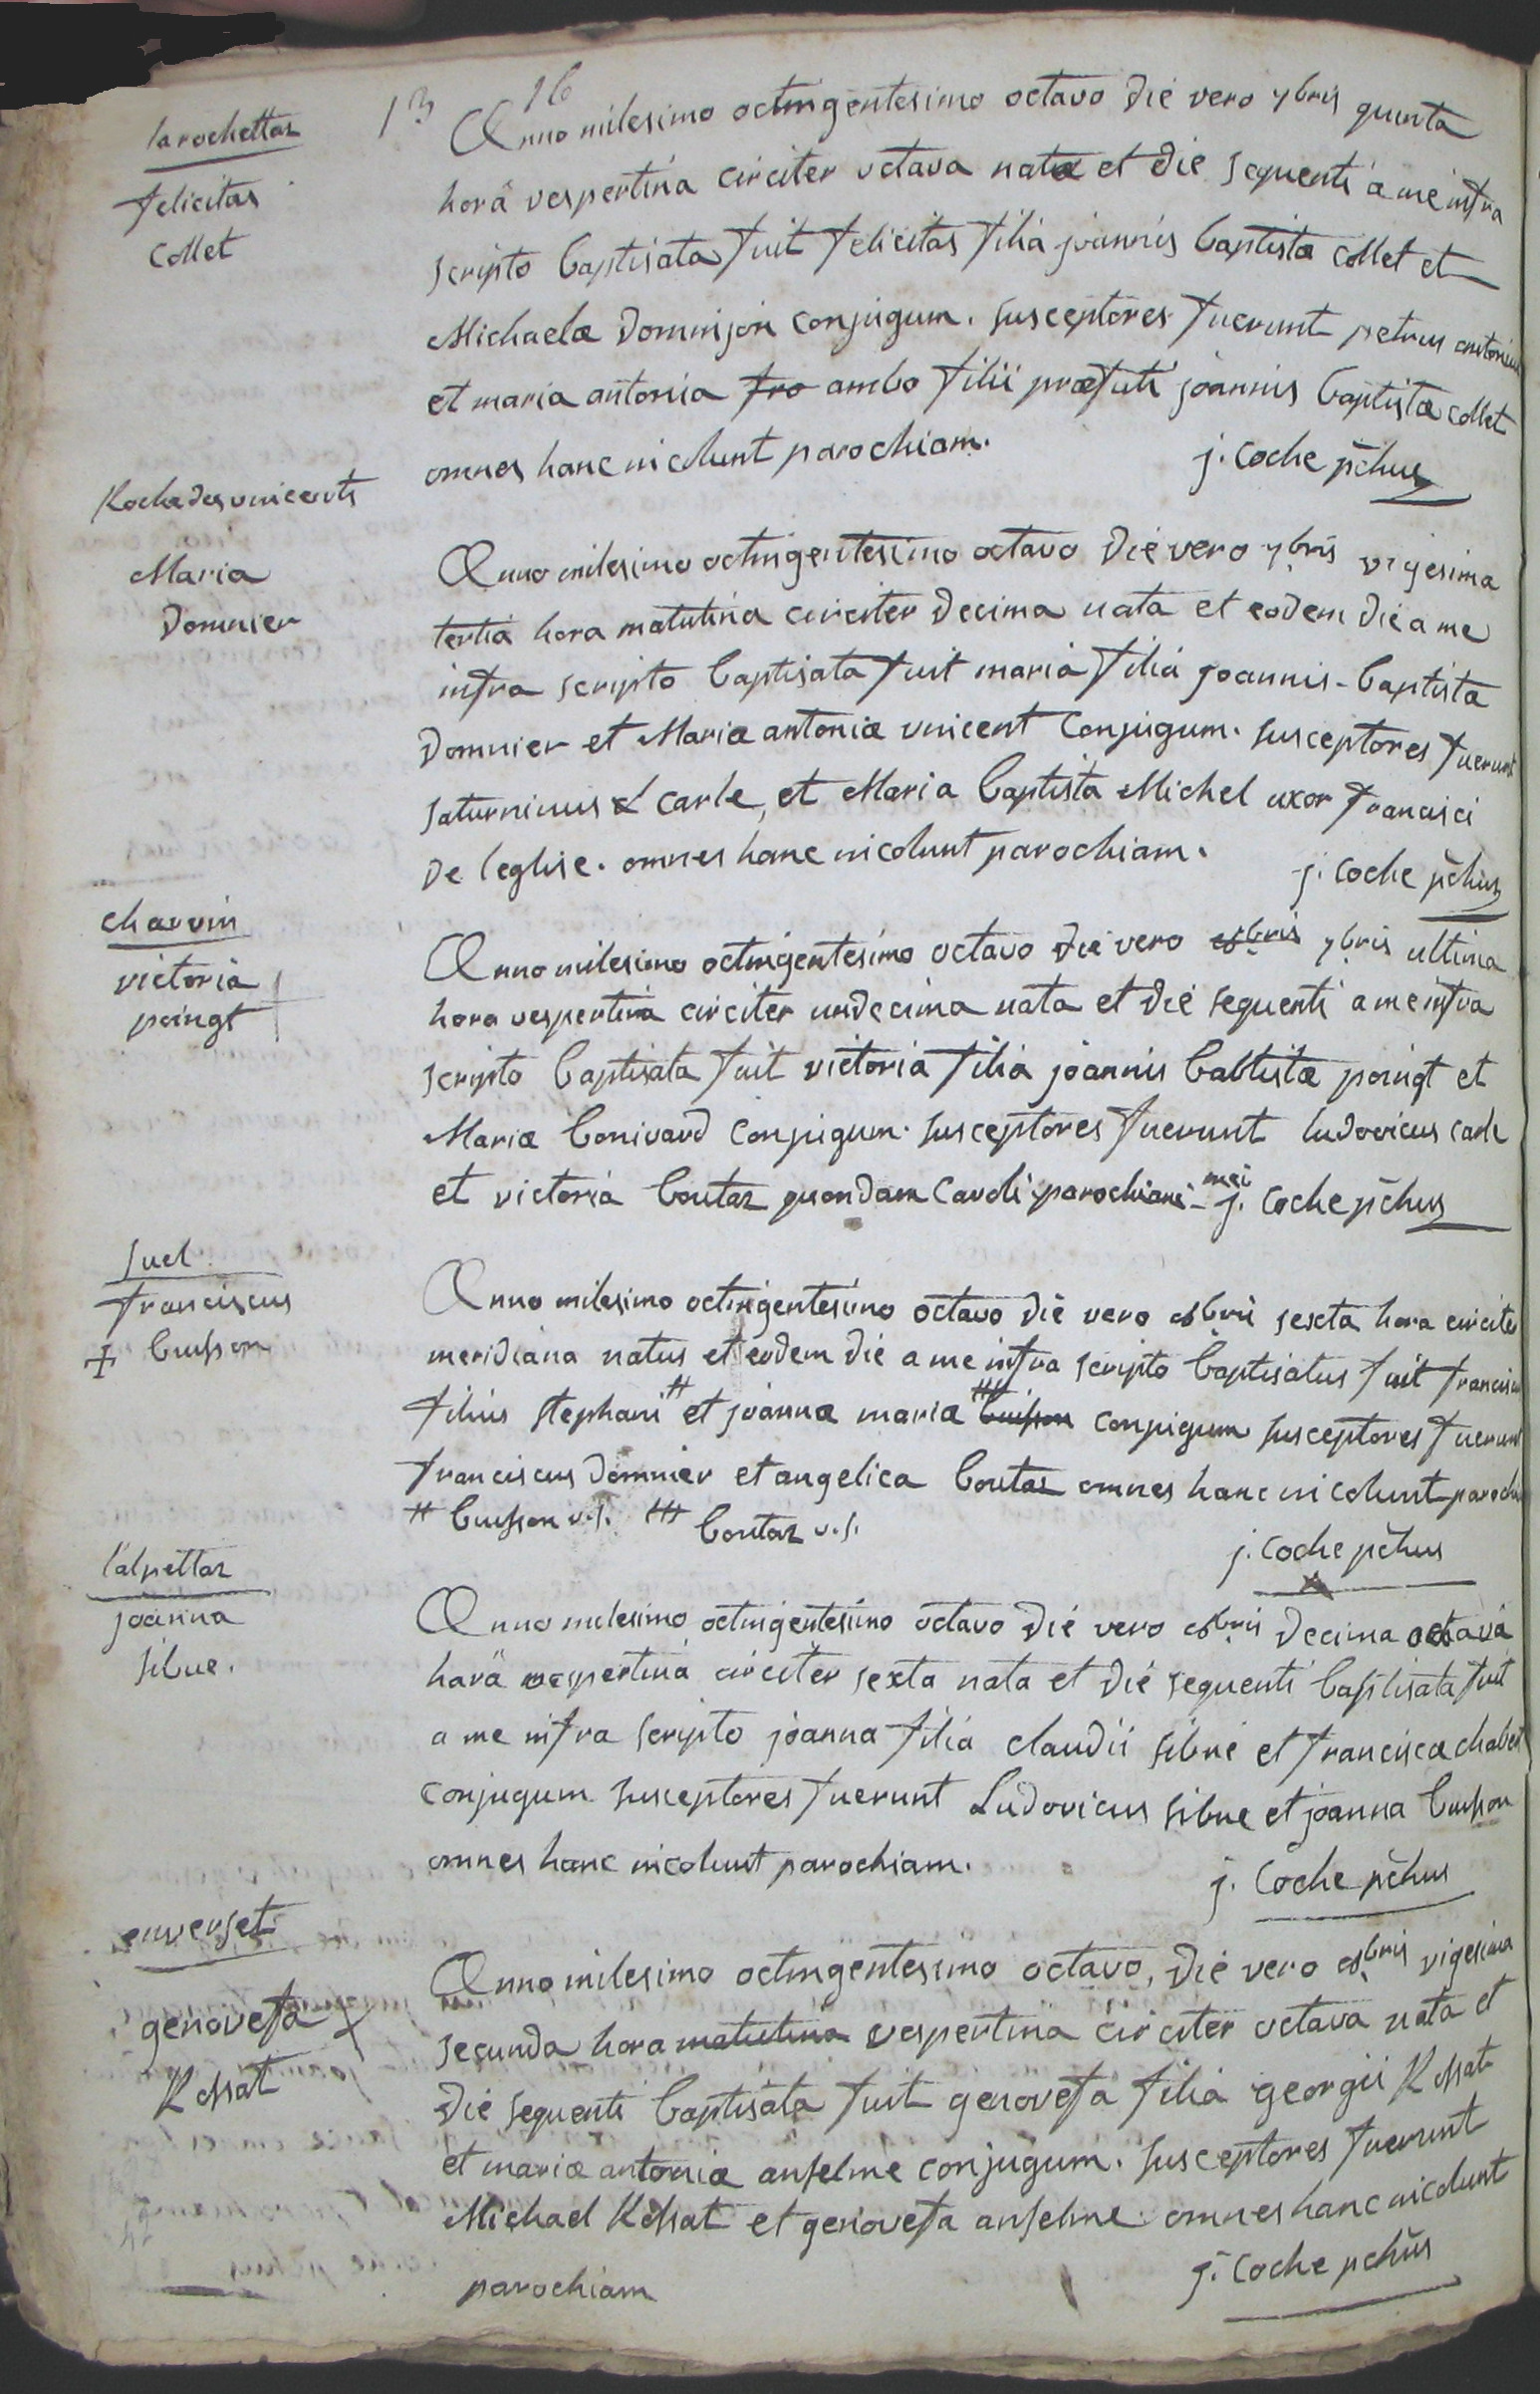 13 16
larochettaz
felicitas
collet
Anno milesimo octingentesimo octavo die vero 7bris quinta
horâ vespertina circiter octava nata et die sequenti a me infra
scripto baptisata fuit felicitas filia joannis baptistæ collet et
Michaelæ Dominjon conjugum. susceptores fuerunt petrus antonius
et maria antonia fro ambo filii præfati joannis baptistæ collet
omnes hanc incolunt parochiam.
j. coche pchus
Rochedesvincents
Maria
Domnier
Anno milesimo octingentesimo octavo die vero 7bris vigesima
tertia hora matutina circiter decima nata et eodem die a me
infra scripto baptisata fuit maria filia joannis-baptistæ
Domnier et Mariæ antoniæ vincent conjugum. susceptores fuerunt
saturninus carle, et Maria baptista Michel uxor francisci
de leglise. omnes hanc incolunt parochiam.
j. coche pchus
charvin
victoria
poingt
Anno milesimo octingentesimo octavo die vero 8bris 7bris ultima
hora vespertina circiter undecima nata et die sequenti a me infra
scripto baptisata fuit victoria filia joannis babtistæ poingt et
Mariæ bonivard conjugum. susceptores fuerunt ludovicus carle
et victoria boutaz quondam caroli parochiani mei
j. coche pchus
suel
franciscus
+ buisson
Anno milesimo octingentesimo octavo die vero 8bris sexta hora circiter
meridiana natus et eodem die a me infra scripto baptisatus fuit
filius stephani # et joannæ mariæ buisson conjugum susceptores fuerunt
franciscus domnier et angelica boutaz omnes hanc incolunt
# buisson v.s. boutaz v.s.
j. coche pchus
l'alpettaz
joanna
sibue.
Anno milesimo octingentesimo octavo die vero 8bris decima octava
horâ vespertina circiter sexta nata et die sequenti baptisata fuit
a me infra scripto joanna filia claudii sibue et franciscæ
conjugum susceptores fuerunt Ludovicus sibue et joanna buisson
omnes hanc incolunt parochiam.
j. coche pchus
enverset
genovefa
Rossat
Anno milesimo octingentesimo octavo, die vero 8bris vigesima
secunda hora matutina vespertina circiter octava nata et
die sequenti baptisata fuit genovefa filia georgii Rossat
et mariæ antoniæ anselme conjugum. susceptores fuerunt
Michael Rossat et genovefa anselme omnes hanc incolunt
parochiam
j. coche pchus